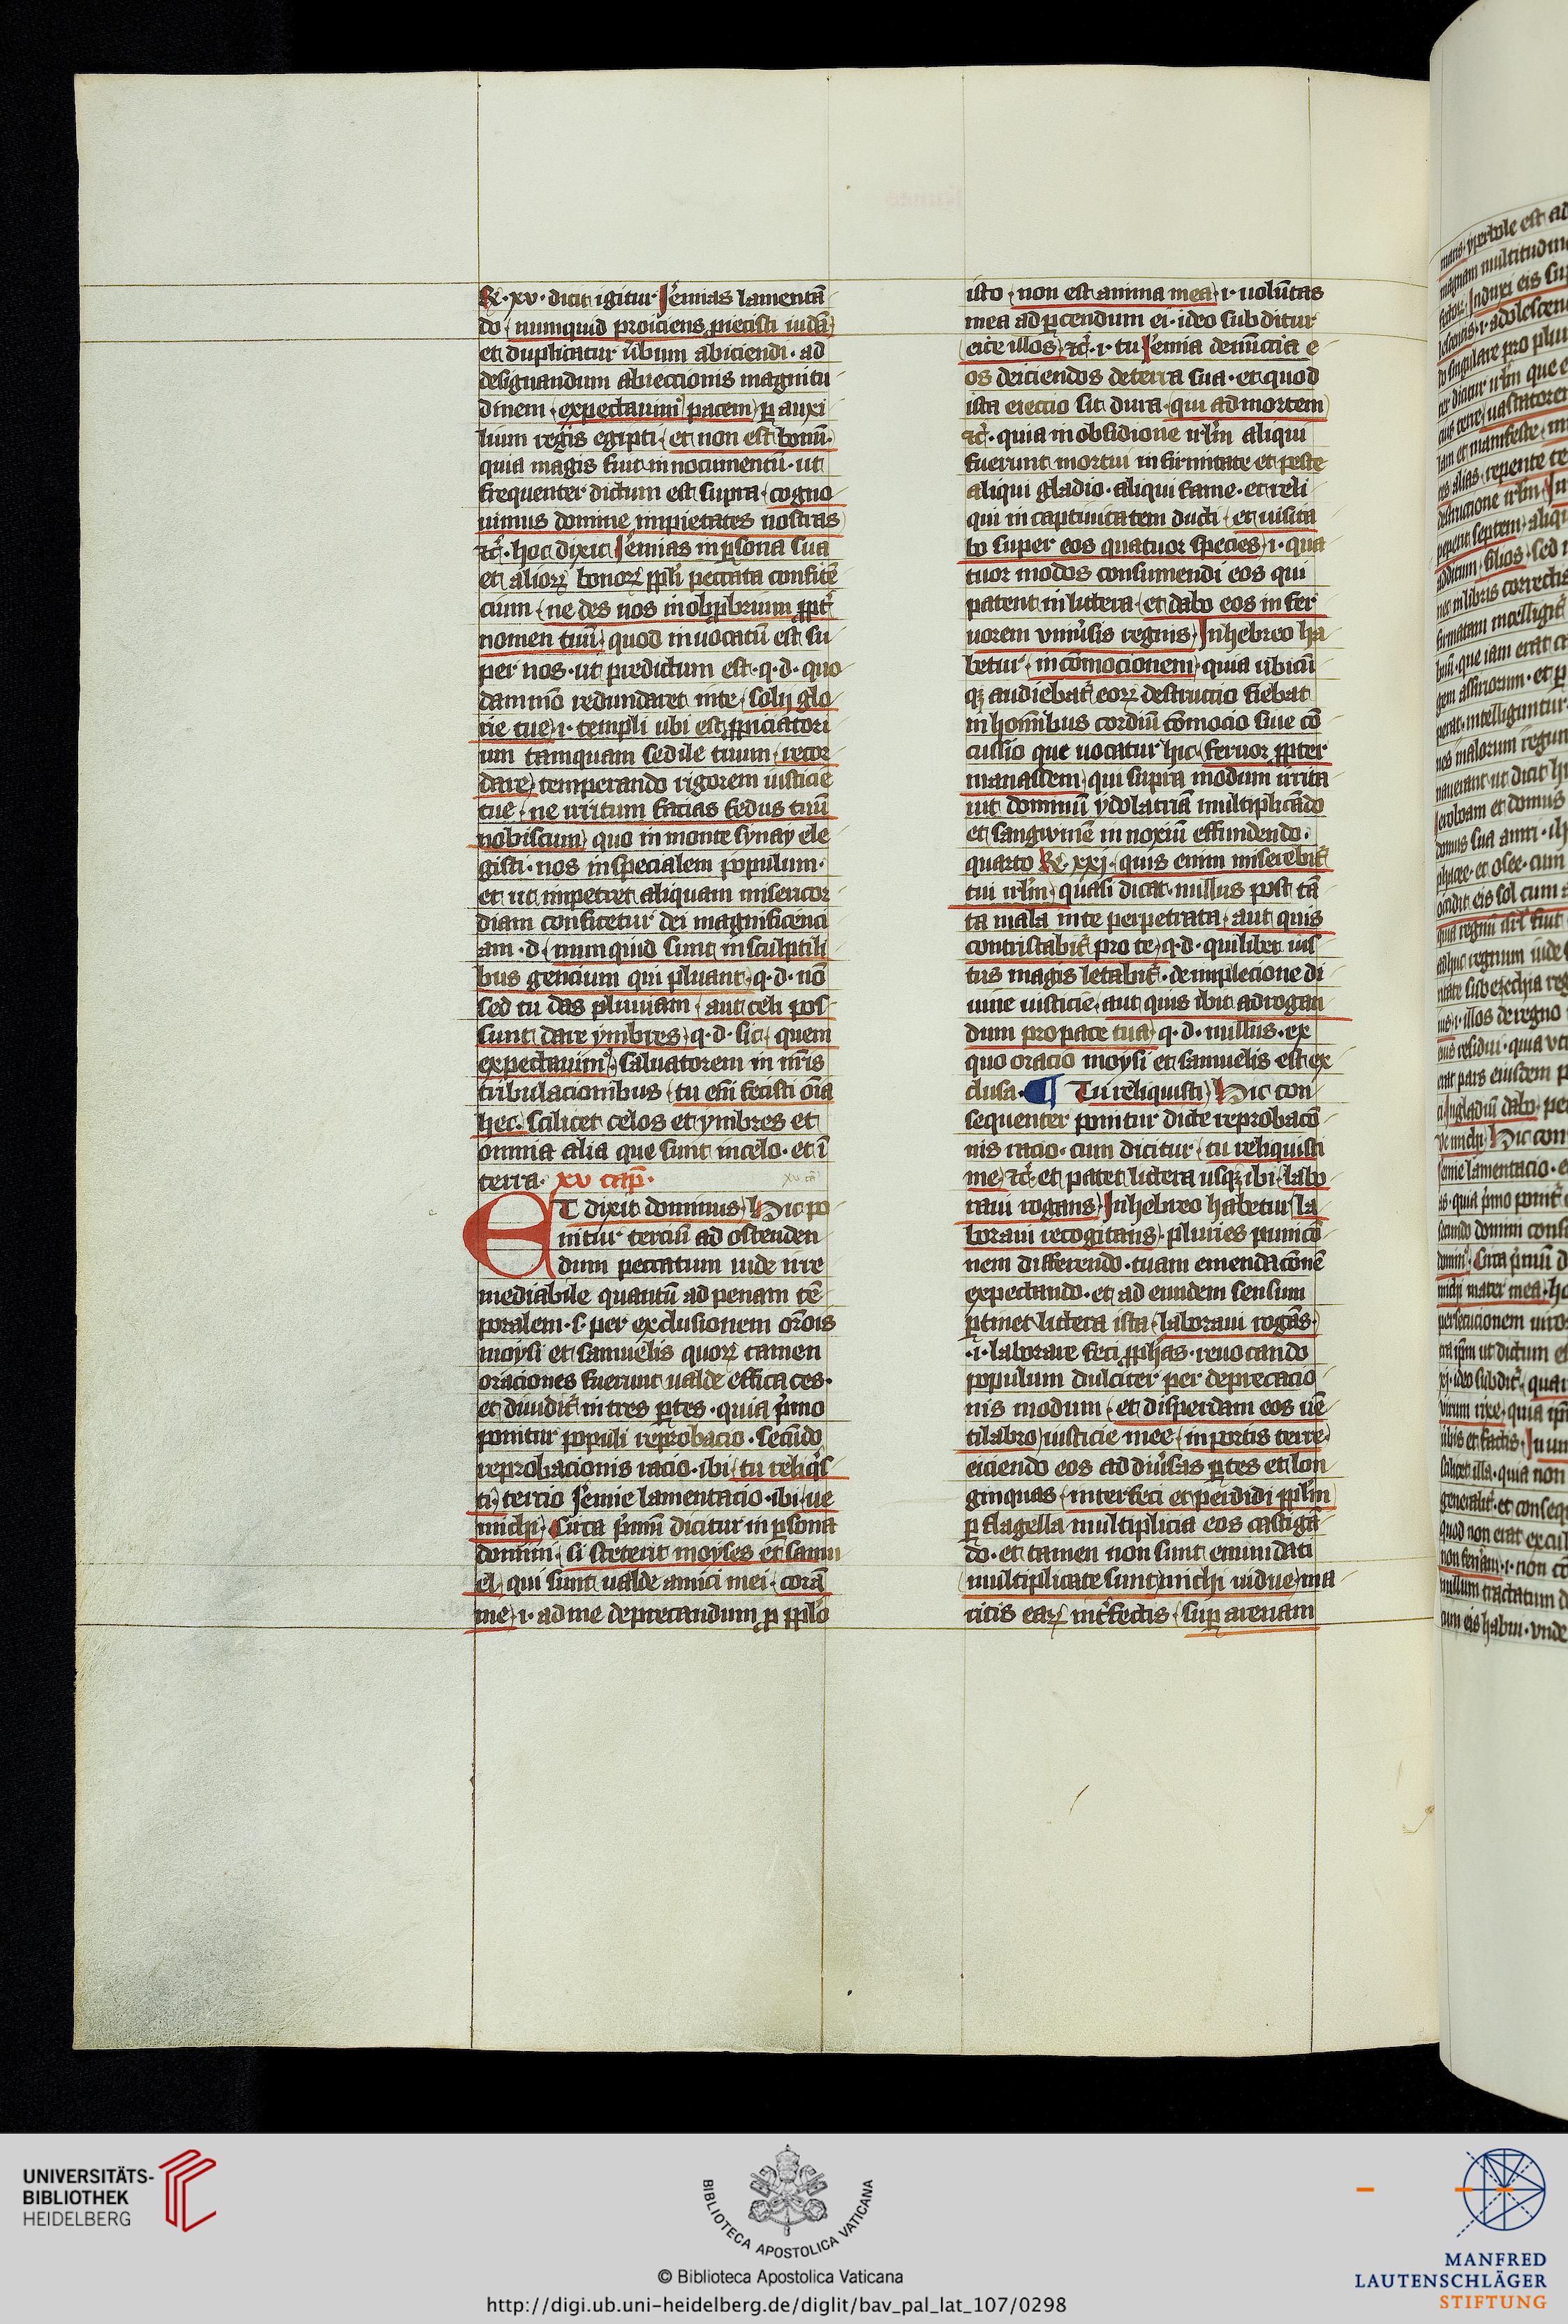 Rͤ·xv· dicit igitur Jeremias lamentā
do numquid proiciens proiecisti iudā
et duplicatur ūbum abiciendi· ad
designandum abieccionis magnitu
dinem· expectauimꝰ pacem ꝑ auxi
lium regis egipti et non est bonū·
quia magis fuit in nocumentū· ut
frequenter dictum est supra· cogno
uimus domine impietates nostras
⁊c̄· hoc dixit Jeremias in ꝑsona sua
et alioꝝ bonoꝝ ppl̄i peccata confitē
cium ne des nos in obꝓbrium ꝓpt̄
nomen tuū quod inuocatū est su
per nos· ut predictum est· q·d· quo
dammō redundaret in te solij glo
rie tue ·i· templi ubi est ꝓpiciatori
um tamquam sedile tuum recor
dare temperando rigorem iusticie
tue· ne irritum facias fedus tuū
nobiscum quo in monte synay ele
gisti· nos in specialem populum·
et ut impetret aliquam misericor
diam confitetur dei magnificenci
am ·d· numquid sunt in sculptili
bus gencium qui pluant q·d· nō
sed tu das pluuiam aut celi pos
sunt dare ymbres q·d· sic quem
expectauimꝰ saluatorem in nr̄is
tribulacionibus tu em̄ fecisti om̄ia
hec· scilicet celos et ymbres et
omnia alia que sunt in celo· et ī
terra· xv cap̄· xv cā
ET dixit dominus Hic po
nitur terciū ad ostenden
dum peccatum iude irre
mediabile quantū ad penam tē
poralem· s· per exclusionem or̄ois
moysi et samuelis quoꝝ tamen
oraciones fuerunt ualde efficaces·
et diuidit̄ in tres ꝑtes· quia p̄mo
ponitur populi reprobacio· secūdo
reprobacionis racio· ibi tu reliqⁱs
ti tercio Jeremie lamentacio· ibi ue
michi· Circa p̄mū dicitur in ꝑsona
domini· si steterit moyses et samu
el qui sunt ualde amici mei· corā
me ·i· ad me deprecandum ꝑ ppl̄o
isto non est anima mea ·i· uolūtas
mea ad ꝑcendum ei· ideo subditur
eice illos ⁊c̄· ·i· tu Jeremia denūccia e
os deiciendos de terra sua· et quod
ista eieccio sit dura· qui ad mortem
⁊c̄· quia in obsidione irl̄m aliqui
fuerunt mortui infirmitate et peste
aliqui gladio· aliqui fame· et reli
qui in captiuitatem ducti et uisita
bo super eos quatuor species ·i· qua
tuor modos consumendi eos qui
patent in littera· et dabo eos in fer
uorem vniūsis regnis In hebreo ha
betur in cōmocionem quia ubicū
qꝫ audiebat̄ eoꝝ destruccio fiebat
in hominibus cordiū cōmocio siue cō
cussio que uocatur hic feruor ꝓpter
manassem qui supra modum irrita
uit dominū ydolatriā multiplicādo
et sangwinē innoxiū effundendo·
quarto Rͤ· xxj· quis enim miserebit̄
tui irl̄m quasi dicat· nullus post tā
ta mala in te perpetrata· aut quis
contristabit̄ pro te q·d· quilibet ius
tus magis letabit̄· de implecione di
uine iusticie aut quis ibit ad rogan
dum pro pace tua q·d· nullus· ex
quo oracio moysi et samuelis est ex
clusa· ¶ Tu reliquisti Hic con
sequenter ponitur dicte reprobacō
nis racio· cum dicitur tu reliquisti
me ⁊c̄ et patet littera usqꝫ ibi labo
raui rogans In hebreo habetur la
boraui recogitans· pluries punicō
nem differendo· tuam emendacōnē
expectando· et ad eundem sensum
ꝑtinet littera ista laboraui rogās·
·i· laborare feci ꝓph̄as· reuocando
populum dulciter per deprecacio
nis modum et disperdam eos uē
tilabro iusticie mee in portis terre
eiciendo eos ad diūsas ꝑtes et lon
ginquas interfeci et perdidi ppl̄m
ꝑ flagella multiplicia eos castigā
do· et tamen non sunt emundati
multiplicate sunt michi uidue ma
ritis eaꝝ int̄fectis sup̄ arenam
UNIVERSITÄTS-
BIBLIOTHEK
HEIDELBERG
BIBLIOTECA APOSTOLICA VATICANA
© Biblioteca Apostolica Vaticana
http://digi.ub.uni-heidelberg.de/diglit/bav_pal_lat_107/0298
MANFRED
LAUTENSCHLÄGER
STIFTUNG